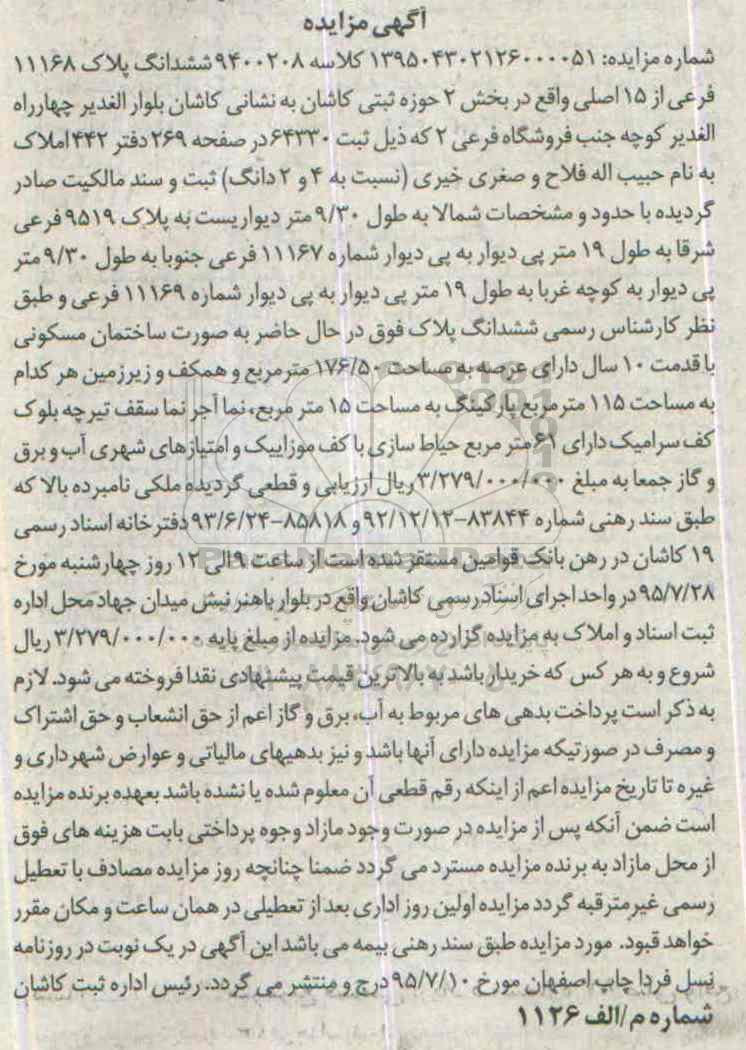 آگهی مزایده
شماره مزایده: ۱۳۹۵۰۴۳۰۲۱۲۶۰۰۰۰۵۱ کلاسه ۹۴۰۰۲۰۸ ششدانگ پلاک ۱۱۱۶۸
فرعی از ۱۵ اصلی واقع در بخش ۲ حوزه ثبتی کاشان به نشانی کاشان بلوار الغدیر چهارراه
الغدیر کوچه جنب فروشگاه فرعی ۲ که ذیل ثبت ۶۴۳۳۰ در صفحه ۲۶۹ دفتر ۴۴۲ املاک
به نام حبیب اله فلاح و صغری خیری (نسبت به ۴ و ۲ دانگ) ثبت و سند مالکیت صادر
گردیده با حدود و مشخصات شمالا به طول ۹/۳۰ متر دیواریست به پلاک ۹۵۱۹ فرعی
شرقا به طول ۱۹ متر پی دیوار به پی دیوار شماره ۱۱۱۶۷ فرعی جنوبا به طول ۹/۳۰ متر
پی دیوار به کوچه غربا به طول ۱۹ متر پی دیوار به پی دیوار شماره ۱۱۱۶۹ فرعی و طبق
نظر کارشناس رسمی ششدانگ پلاک فوق در حال حاضر به صورت ساختمان مسکونی
با قدمت ۱۰ سال دارای عرصه به مساحت ۱۷۶/۵۰ مترمربع و همکف و زیرزمین هر کدام
به مساحت ۱۱۵ مترمربع پارکینگ به مساحت ۱۵ متر مربع، نما آجر نما سقف تیرچه بلوک
کف سرامیک دارای ۶۱ متر مربع حیاط سازی با کف موزاییک و امتیازهای شهری آب و برق
و گاز جمعا به مبلغ ۳/۲۷۹/۰۰۰/۰۰۰ ریال ارزیابی و قطعی گردیده ملکی نامبرده بالا که
طبق سند رهنی شماره ۸۳۸۴۴-۹۲/۱۲/۱۲ و ۸۵۸۱۸-۹۳/۶/۲۴ دفترخانه اسناد رسمی
۱۹ کاشان در رهن بانک قوامین مستقر شده است از ساعت ۹ الی ۱۲ روز چهارشنبه مورخ
۹۵/۷/۲۸ در واحد اجرای اسناد رسمی کاشان واقع در بلوار باهنر نبش میدان جهاد محل اداره
ثبت اسناد و املاک به مزایده گزارده می شود. مزایده از مبلغ پایه ۳/۲۷۹/۰۰۰/۰۰۰ ریال
شروع و به هر کس که خریدار باشد به بالاترین قیمت پیشنهادی نقدا فروخته می شود. لازم
به ذکر است پرداخت بدهی های مربوط به آب، برق و گاز اعم از حق انشعاب و حق اشتراک
و مصرف در صورتیکه مزایده دارای آنها باشد و نیز بدهیهای مالیاتی و عوارض شهرداری و
غیره تا تاریخ مزایده اعم از اینکه رقم قطعی آن معلوم شده یا نشده باشد بعهده برنده مزایده
است ضمن آنکه پس از مزایده در صورت وجود مازاد وجوه پرداختی بابت هزینه های فوق
از محل مازاد به برنده مزایده مسترد می گردد ضمنا چنانچه روز مزایده مصادف با تعطیل
رسمی غیرمترقبه گردد مزایده اولین روز اداری بعد از تعطیلی در همان ساعت و مکان مقرر
خواهد قبود. مورد مزایده طبق سند رهنی بیمه می باشد این آگهی در یک نوبت در روزنامه
نسل فردا چاپ اصفهان مورخ ۹۵/۷/۱۰ درج و منتشر می گردد. رئیس اداره ثبت کاشان
شماره م/الف ۱۱۲۶